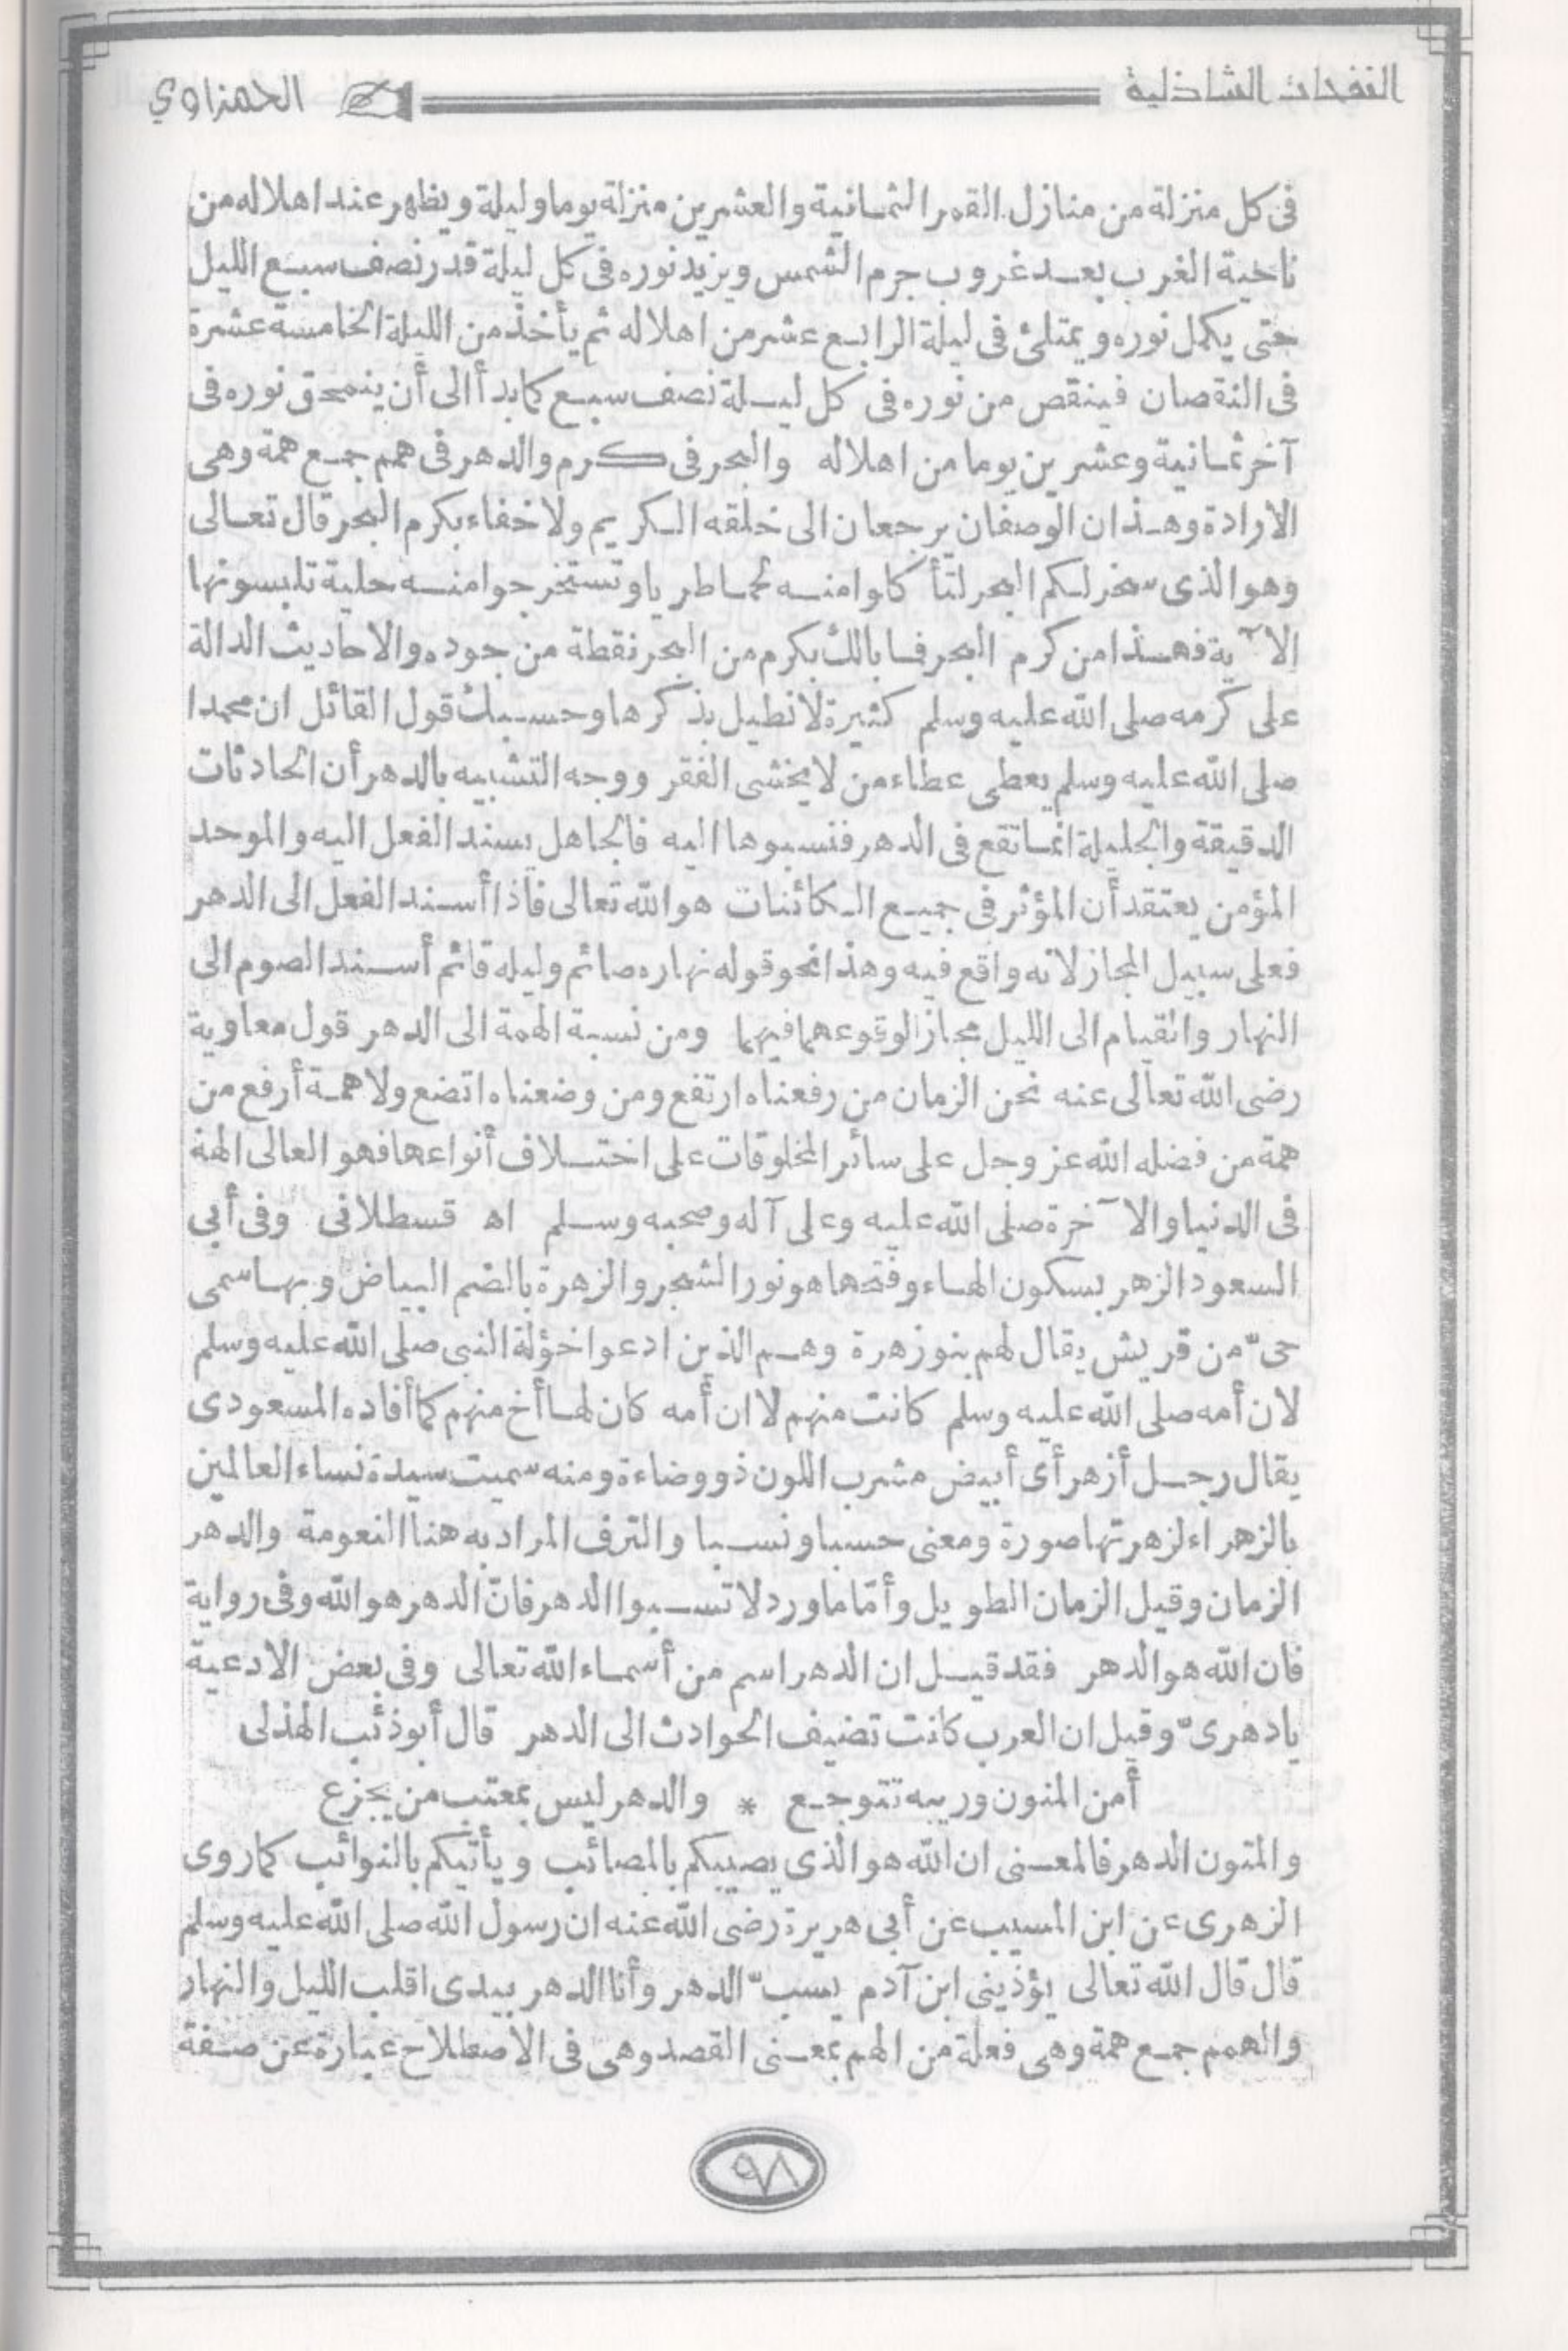 النفحات الشاذلية
الحمزاوي
فى كل منزلة من منازل القمر الثمانية والعشرين منزلة يوما وليلة ويظهر عند اهلاله من
ناحية الغرب بعد غروب جرم الشمس ويزيد نوره فى كل ليلة قدر نصف سبع الليل
حتى يكمل نوره ويمتلئ فى ليلة الرابع عشر من اهلاله ثم يأخذ من الليلة الخامسة عشرة
فى النقصان فينقص من نوره فى كل ليلة نصف سبع كما بدأ الى أن ينمحق نوره فى
آخر ثمانية وعشرين يوما من اهلاله والبحر فى كرم والدهر فى همم جمع همة وهى
الارادة وهذان الوصفان يرجعان الى خلقه الكريم ولا خفاء بكرم البحر قال تعالى
وهو الذى سخر لكم البحر لتأكلوا منه لحما طريا وتستخرجوا منه حلية تلبسونها
الآية فهذا من كرم البحر فما بالك بكرم من البحر نقطة من جوده والاحاديث الدالة
على كرمه صلى الله عليه وسلم كثيرة لا نطيل بذكرها وحسبك قول القائل ان محمدا
صلى الله عليه وسلم يعطى عطاء من لا يخشى الفقر ووجه التشبيه بالدهر أن الحادثات
الدقيقة والجليلة انما تقع فى الدهر فنسبوها اليه فالجاهل يسند الفعل اليه والموحد
المؤمن يعتقد أن المؤثر فى جميع الكائنات هو الله تعالى فاذا أسند الفعل الى الدهر
فعلى سبيل المجاز لانه واقع فيه وهذا نحو قوله نهاره صائم وليله قائم أسند الصوم الى
النهار والقيام الى الليل مجازا لوقوعهما فيهما ومن نسبة الهمة الى الدهر قول معاوية
رضى الله تعالى عنه نحن الزمان من رفعناه ارتفع ومن وضعناه اتضع ولا همة أرفع من
همة من فضله الله عز وجل على سائر المخلوقات على اختلاف أنواعها فهو العالى الهمة
فى الدنيا والآخرة صلى الله عليه وعلى آله وصحبه وسلم اه قسطلانى وفى أبى
السعود الزهر بسكون الهاء وفتحها هو نور الشجر والزهرة بالضم البياض وبها سمى
حىّ من قريش يقال لهم بنو زهرة وهم الذين ادعوا خؤلة النبى صلى الله عليه وسلم
لان أمه صلى الله عليه وسلم كانت منهم لا ان أمه كان لها أخ منهم كما أفاده المسعودى
يقال رجل أزهر أى أبيض مشرب اللون ذو وضاءة ومنه سميت سيدة نساء العالمين
بالزهراء لزهرتها صورة ومعنى حسبا ونسبا والترف المراد به هنا النعومة والدهر
الزمان وقيل الزمان الطويل وأمّا ما ورد لا تسبوا الدهر فانّ الدهر هو الله وفى رواية
فان الله هو الدهر فقد قيل ان الدهر اسم من أسماء الله تعالى وفى بعض الادعية
يا دهرىّ وقيل ان العرب كانت تضيف الحوادث الى الدهر قال أبو ذئب الهذلى
أمن المنون وريبه تتوجع * والدهر ليس بمعتب من يجزع
والمنون الدهر فالمعنى ان الله هو الذى يصيبكم بالمصائب ويأتيكم بالنوائب كما روى
الزهرى عن ابن المسيب عن أبى هريرة رضى الله عنه ان رسول الله صلى الله عليه وسلم
قال قال الله تعالى يؤذينى ابن آدم يسبّ الدهر وأنا الدهر بيدى اقلب الليل والنهار
والهمم جمع همة وهى فعلة من الهم بمعنى القصد وهى فى الاصطلاح عبارة عن صفة
٩٨